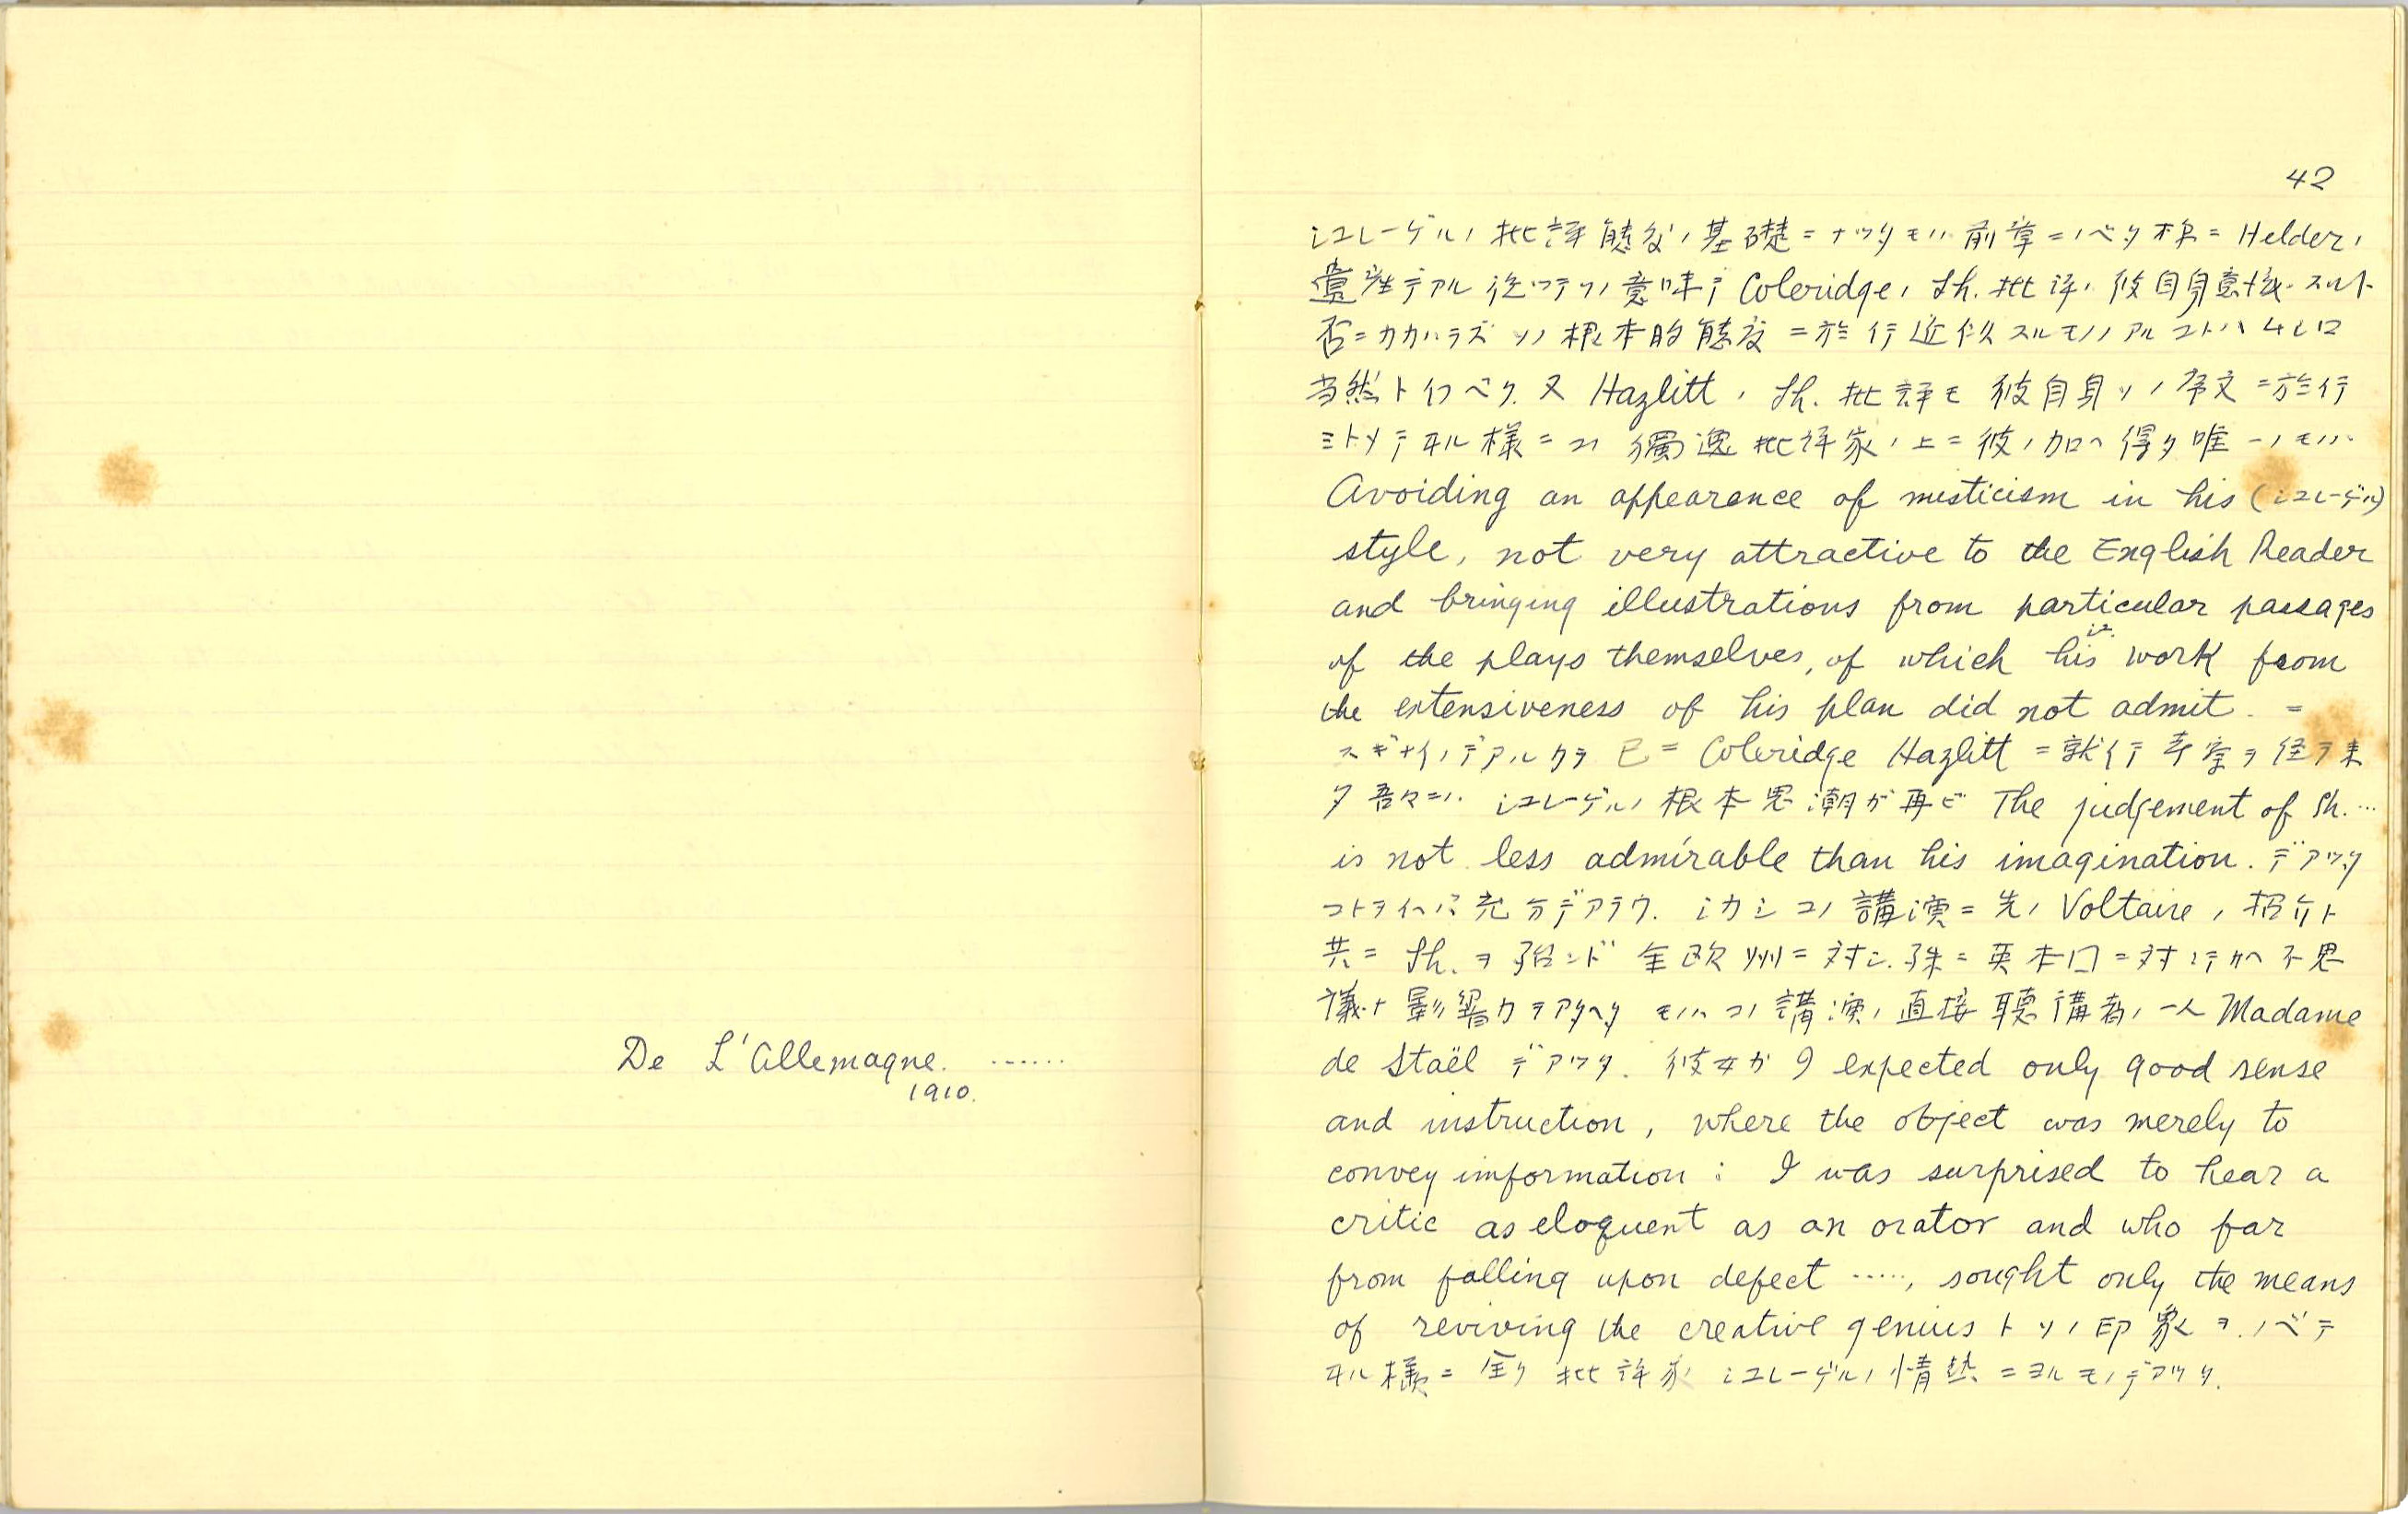 De L'Allemagne. ......
1910.
42
シユレーゲルノ批評態度ノ基礎ニナツタモノハ前章ニノベタ様ニ Helderノ
デアル 従ツテソノ意味デ Coleridgeノ Sh. 批評ノ彼自身意識スルト
否ニカカハラズ ソノ根本的態度ニ於イテ近似スルモノノアルコトハムシロ
当然ト云フベク. 又 Hazlittノ Sh. 批評モ彼自身ソノ序文ニ於イテ
ミトメテヰル様ニコノ獨逸批評家ノ上ニ彼ノ加ヘ得タ唯一ノモノハ
Avoiding an appearance of misticism in his (シユレーゲル)
style, not very attractive to the English Reader
and bringing illustrations from particular passages
of the plays themselves, of which his work from
the extensiveness of his plan did not admit. ニ
スギナイノデアルカラ 已ニ Coleridge Hazlitt ニ就イテ章ヲ経テ来
タ吾々ニハ シユレーゲルノ根本思潮ガ再ビ The judgement of Sh. ...
is not less admirable than his imagination. デアツタ
コトヲイヘバ充分デアラウ. シカシコノ講演ニ先ノ Voltaireノ紹介ト
共ニ Sh. ヲ殆ンド全欧州ニ対シ. 殊ニ英本国ニ対シテサヘ不思
議ナ影響力ヲアタヘタモノハコノ講演ノ直接聴講者ノ一人 Madame
de Staël デアツタ. 彼女ガ I expected only good sense
and instruction, where the object was merely to
convey imformation : I was surprised to hear a
critic as eloquent as an orator and who far
from falling upon defect ....., sought only the means
of reviving the creative genius トソノ印象ヲノベテ
ヰル様ニ全ク批評家シユレーゲルノ情熱ニヨルモノデアツタ.